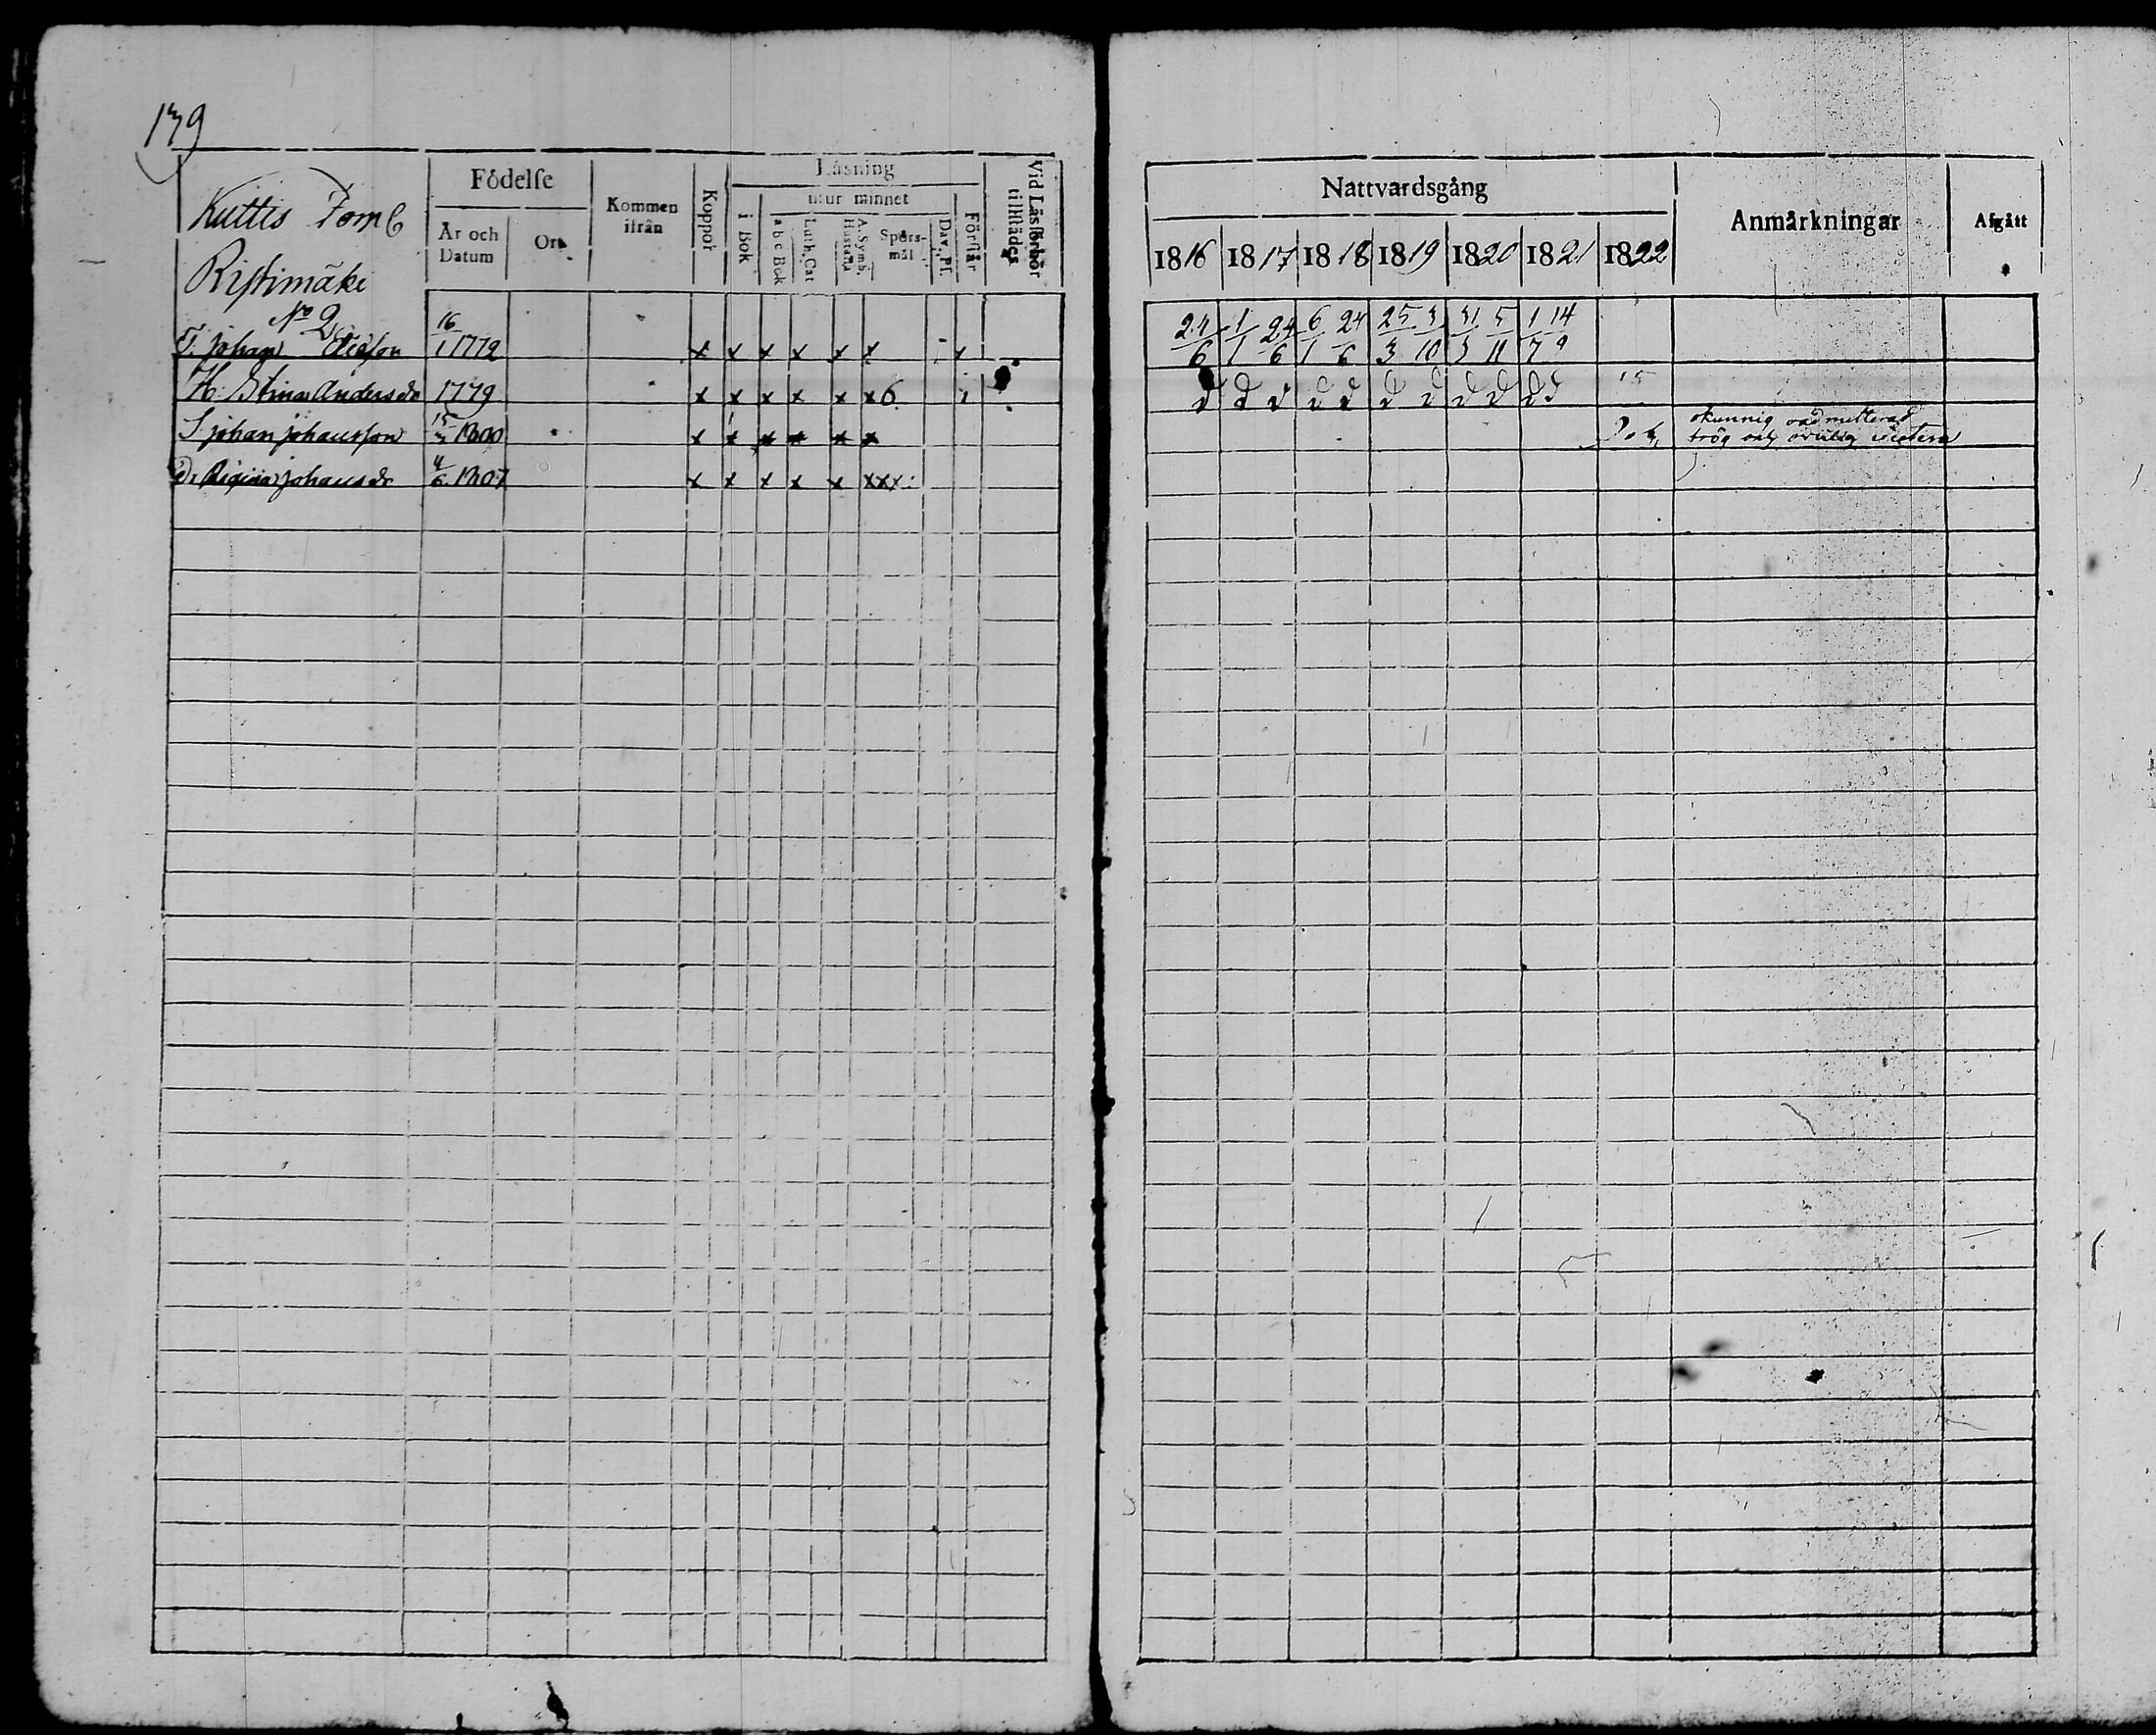 179
Kuttis Tomb
Ristimäki
No 2
Födelse
År och Datum
Ort
Kommen ifrån
Koppor
Läsning
i Bok
utur minnet
a b c Bok
Luth. Cat
A. Symb. Hustafla
Spörs-mål
Dav. Ps.
Förstår
Vid Läsförhör tillstädes
Nattvardsgång
1816 1817 1818 1819 1820 1821 1822
Anmärkningar
Afgått
T. Johan 16/1 1772 x x x x x x x 24/6 1/1 24/6 6/1 24/6 25/3 3/10 31/3 5/11 1/7 14/9
H. Stina Andersdr 1779 x x x x x x 6 D D D D D D D D D D
S Johan Johansson 15 1800 x x x x x x okunnig
trög och
D. Regina Johansdr 4/6 1807 x x x x x xxx